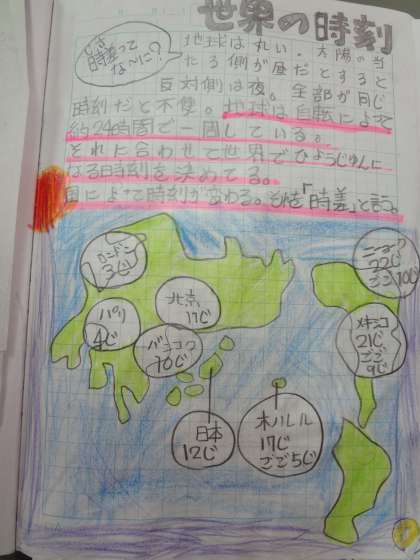 世界の時刻
時差って
な〜に?
地球は丸い。太陽の当
たる側が昼だとすると
反対側は夜。全部が同じ
時刻だと不便。地球は自転によって
約24時間で一周している。
それに合わせて世界でひょうじゅんに
なる時刻を決めてる。
国によって時刻が変わる。「時差」と言う。
ロンドン
3じ
ニューヨーク
22じ
ごご10じ
北京
11じ
パリ
4じ
メキシコ
21じ
ごご
9じ
バンコク
10じ
日本
12じ
ホノルル
17じ
ごご5じ